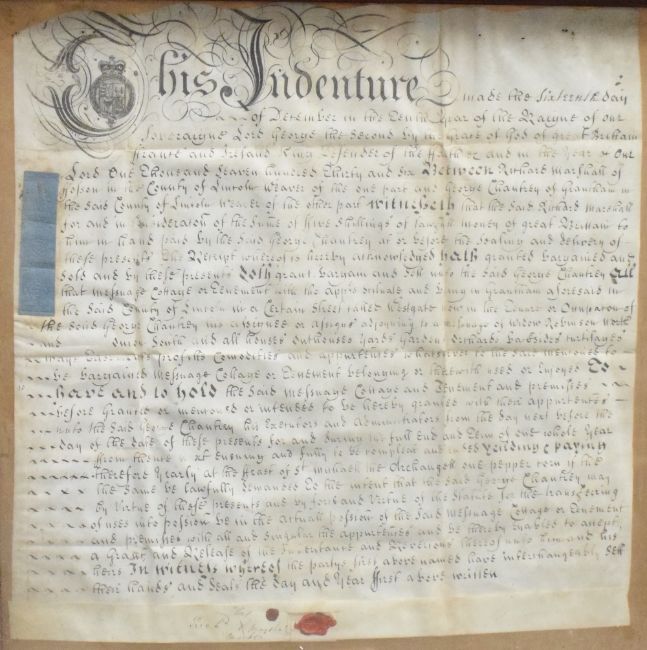 This Indenture made the Sixteenth day
of December in the Tenth Year of the Raigne of our
Soveraigne Lord George the Second by the grace of God of great Brittain
ffrance and Ireland King Defender of the ffaith &c and in the Year of Our
Lord One Thousand Seaven hundred Thirty and Six Between Richard Marshall of
in the County of Lincoln Weaver of the one part and George Chantrey of Grantham in
the said County of Lincoln Weaver of the other part Witnesseth that the said Richard Marshall
for and in Consideracon of the Summe of ffive Shillings of lawfull money of great Brittain to
him in hand paid by the said George Chantrey at or before the Sealing and delivery of
these presents the Receipt whereof is hereby acknowledged Hath granted bargained and
sold and by these presents Doth grant bargain and sell unto the said George Chantrey All
that Messuage Cottage or Tenement with the appurtenances Scituate and being in Grantham aforesaid in
the said County of Lincoln in a Certain Street called Westgate now in the Tenure or Occupacon of
the said George Chantrey his assignee or assigns adjoyning to a messuage of Widow Robinson North
and South and all houses Outhouses Yards Gardens Orchards Backsides
ways Easements profitts Comodities and appurtenances whatsoever to the said mencioned to
be bargained Messuage Cottage or Tenement belonging or therewith used or Enjoyed To
have and to hold the said Messuage Cottage and Tenement and premisses
before Granted or mencioned or intended to be hereby granted with their appurtenances
unto the said George Chantrey his Executors and Administrators from the day next before the
day of the date of these presents for and during the full end and Term of one whole Year
from thence next ensuing and fully to be compleat and ended Yeilding & paying
therefore Yearly at the ffeast of St Michaell the Archangell one pepper corn if the
the same be lawfully demanded To the intent that the said George Chantrey may
by Virtue of these presents and by force and Virtue of the Statute for the transferring
of uses into possession be in the actuall possession of the said Messuage Cottage or Tenement
and premisses with all and Singular the appurtenances and be thereby Enabled to accept
a Grant and Release of the Inheritance and Revercions thereof unto him and his
heirs In witness whereof the partys first above named have interchangeably sett
their hands and Seals the day and Year ffirst above written